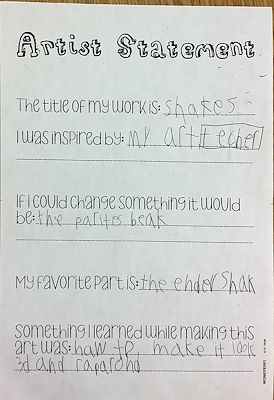 Artist Statement
The title of my work is: shakes
I was inspired by: my art techer
If I could change something it would
be: the parites beak
My favorite part is: the ender shak
Something I learned while making this
art was: haw to make it look
3d and raparond